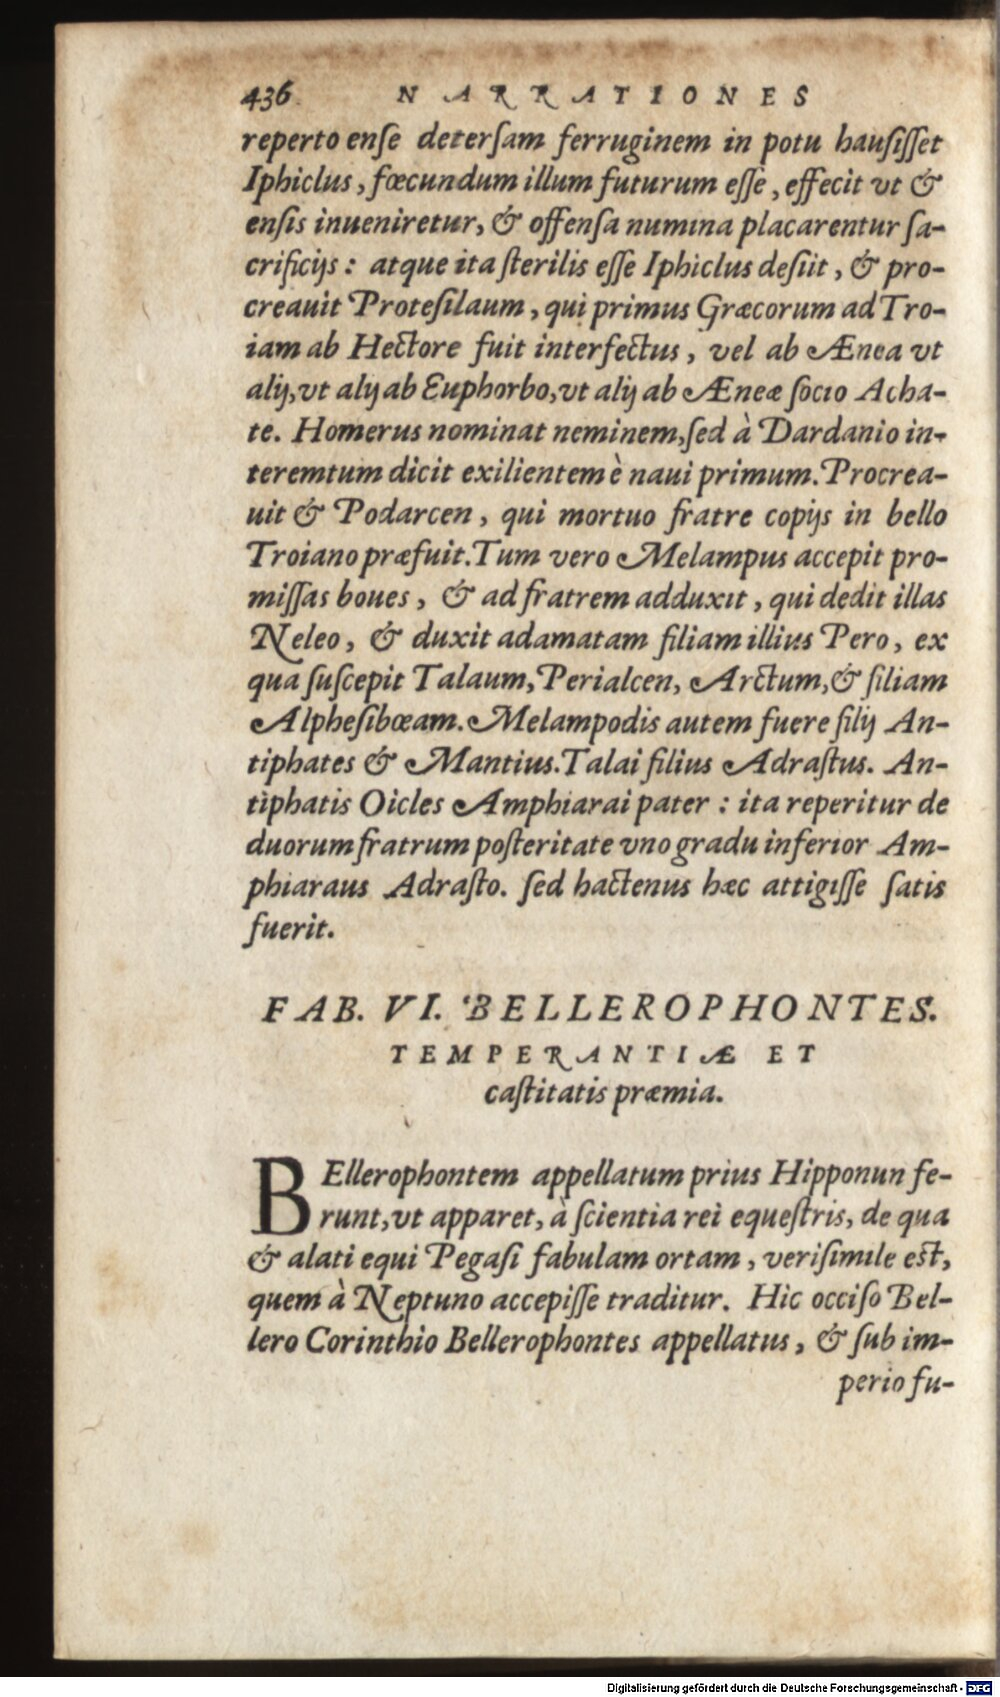 436 NARRATIONES
reperto ense detersam ferruginem in potu hausisset
Iphiclus, fœcundum illum futurum esse, effecit vt &
ensis inueniretur, & offensa numina placarentur sa-
crificijs: atque ita sterilis esse Iphiclus desiit, & pro-
creauit Protesilaum, qui primus Græcorum ad Tro-
iam ab Hectore fuit interfectus, vel ab Ænea vt
alij, vt alij ab Euphorbo, vt alij ab Æneæ socio Acha-
te. Homerus nominat neminem, sed à Dardanio in-
teremtum dicit exilientem è naui primum. Procrea-
uit & Podarcen, qui mortuo fratre copijs in bello
Troiano præfuit. Tum vero Melampus accepit pro-
missas boues, & ad fratrem adduxit, qui dedit illas
Neleo, & duxit adamatam filiam illius Pero, ex
qua suscepit Talaum, Perialcen, Arctum, & filiam
Alphesibœam. Melampodis autem fuere filij An-
tiphates & Mantius. Talai filius Adrastus. An-
tiphatis Oicles Amphiarai pater: ita reperitur de
duorum fratrum posteritate vno gradu inferior Am-
phiaraus Adrasto. sed hactenus hæc attigisse satis
fuerit.
FAB. VI. BELLEROPHONTES.
TEMPERANTIÆ ET
castitatis præmia.
BEllerophontem appellatum prius Hipponun fe-
runt, vt apparet, à scientia rei equestris, de qua
& alati equi Pegasi fabulam ortam, verisimile est,
quem à Neptuno accepisse traditur. Hic occiso Bel-
lero Corinthio Bellerophontes appellatus, & sub im-
perio fu-
Digitalisierung gefördert durch die Deutsche Forschungsgemeinschaft - DFG